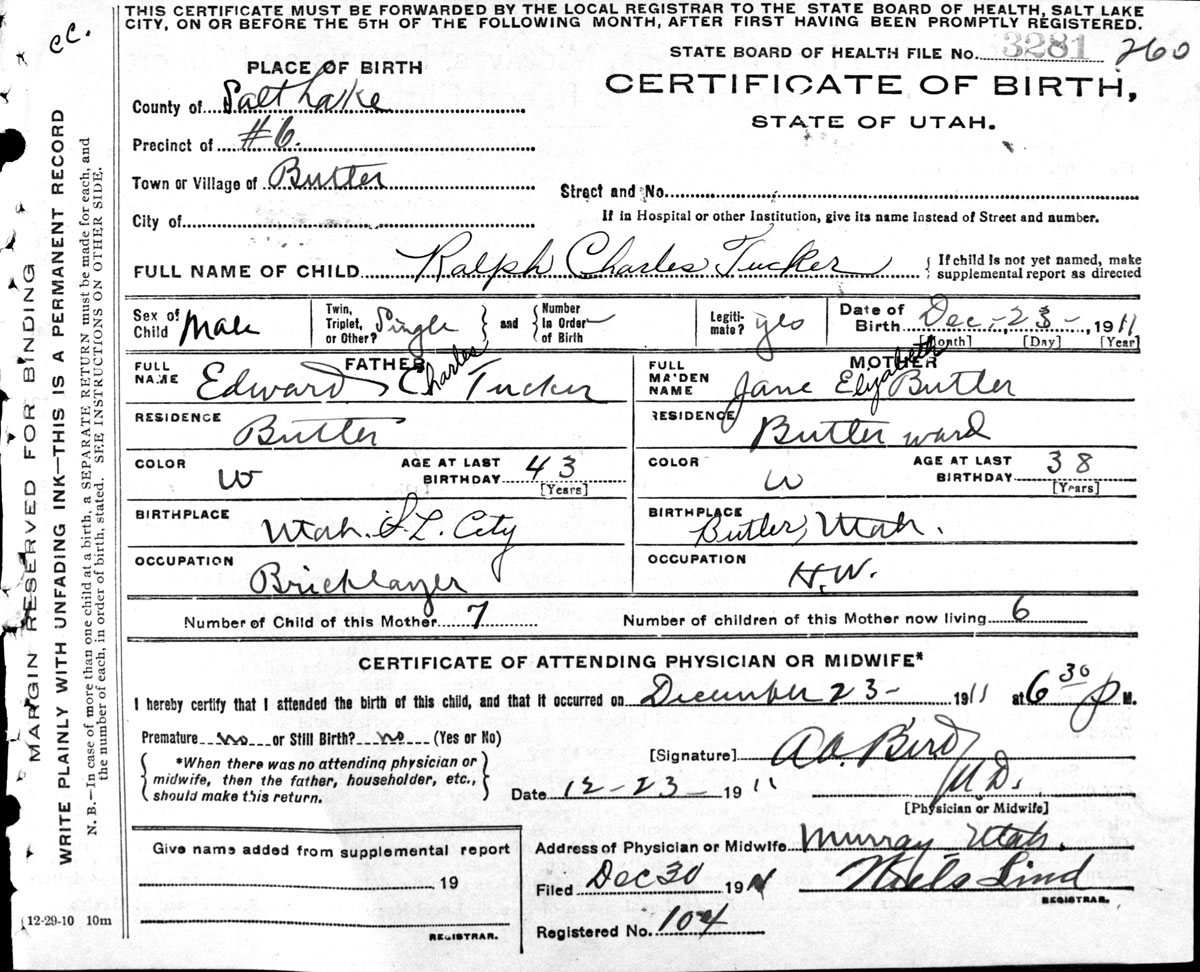 THIS CERTIFICATE MUST BE FORWARDED BY THE LOCAL REGISTRAR TO THE STATE BOARD OF HEALTH, SALT LAKE
CITY, ON OR BEFORE THE 5TH OF THE FOLLOWING MONTH, AFTER FIRST HAVING BEEN PROMPTLY REGISTERED.
cc.
STATE BOARD OF HEALTH FILE No. 3281 260
PLACE OF BIRTH
CERTIFICATE OF BIRTH,
STATE OF UTAH.
County of Salt Lake
Precinct of #6.
Town or Village of Butler
Street and No.
City of
If in Hospital or other Institution, give its name instead of Street and number.
FULL NAME OF CHILD Ralph Charles Tucker
{ If child is not yet named, make
supplemental report as directed
Sex of Child Male
Twin, Triplet, or Other? Single } and { Number In Order of Birth —
Legiti-mate? yes
Date of Birth Dec. - 23 - 1911
[Month] [Day] [Year]
FATHER
FULL NAME Edward Charles Tucker
MOTHER
FULL MAIDEN NAME Jane Elizabeth Butler
RESIDENCE Butler
RESIDENCE Butler ward
COLOR W AGE AT LAST BIRTHDAY 43 [Years]
COLOR W AGE AT LAST BIRTHDAY 38 [Years]
BIRTHPLACE Utah. S. L. City
BIRTHPLACE Butler, Utah.
OCCUPATION Bricklayer
OCCUPATION H.W.
Number of Child of this Mother 7 Number of children of this Mother now living 6
CERTIFICATE OF ATTENDING PHYSICIAN OR MIDWIFE*
I hereby certify that I attended the birth of this child, and that it occurred on December 23 - 1911 at 6 30 p M.
Premature no or Still Birth? no (Yes or No)
{ *When there was no attending physician or
midwife, then the father, householder, etc.,
should make this return. }
[Signature] Bird
M.D.
[Physician or Midwife]
Date 12-23 1911
Give name added from supplemental report
19
REGISTRAR.
Address of Physician or Midwife Murray, Utah.
Filed Dec 30 1911 Niels Lind
REGISTRAR.
Registered No. 104
12-29-10 10m
MARGIN RESERVED FOR BINDING
WRITE PLAINLY WITH UNFADING INK—THIS IS A PERMANENT RECORD
N. B.—In case of more than one child at a birth, a SEPARATE RETURN must be made for each, and
the number of each, in order of birth, stated. SEE INSTRUCTIONS ON OTHER SIDE.